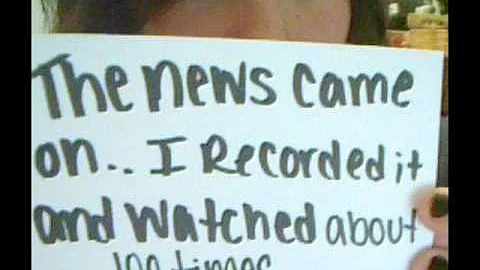 The news came
on.. I Recorded it
and watched about
100 times